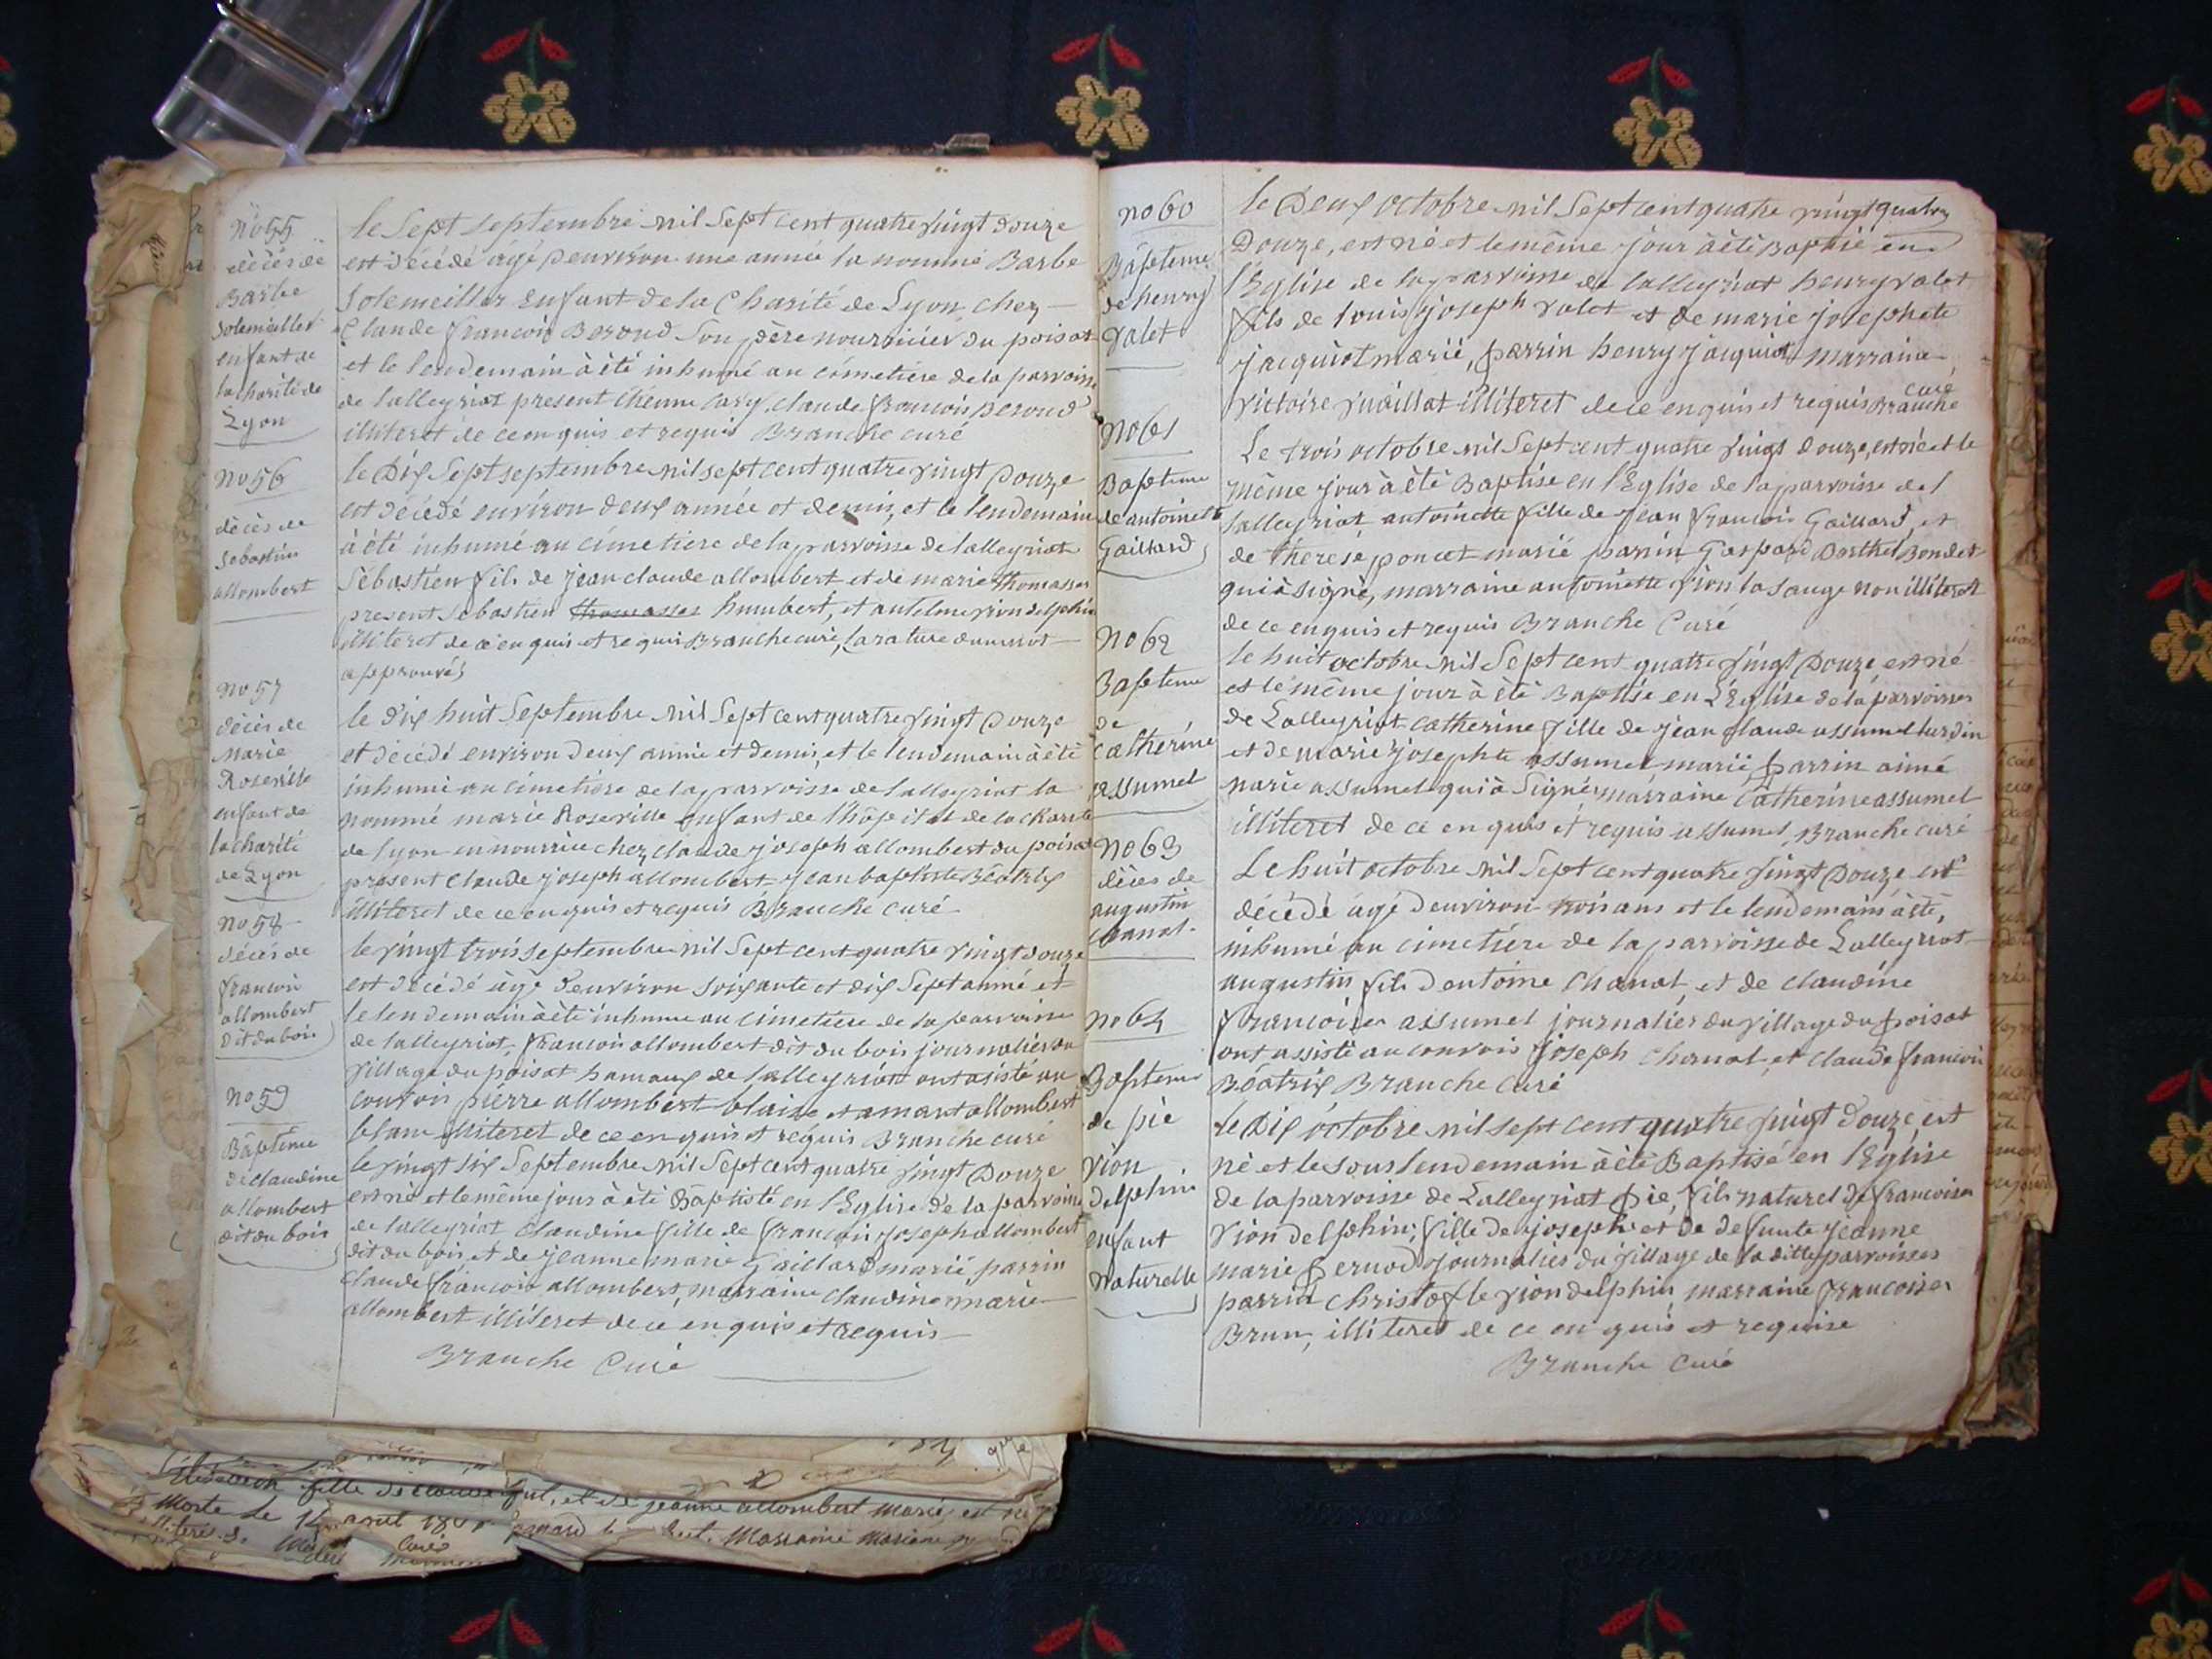 No 55
décès de
Barbe
Solemieller
enfant de
la charité de
Lyon
le Sept septembre mil Sept cent quatre vingt douze
est décédé agé denviron une année la nommé Barbe
Solemeiller enfant de la Charité de Lyon chez
Claude francois Beroud Son père nourricier du poisat
et le lendemain à été inhumé au cimetiere de la parroisse
de lalleyriat present Etienne Cary, claude francois Beroud
illiteret de ce enquis et requis Branche curé
No 56
décès de
Sebastien
allombert
le Dix Sept septembre mil sept cent quatre vingt Douze
est décédé environ deux année et demis, et le lendemain
à été inhumé au cimetiere de la parroisse de lalleyriat
Sébastien fils de jean claude allombert et de marie thomasset
present Sebastien thomasset humbert, et antelme vion delphin
illiteret de ce enquis et requis Branche curé, la rature du mot
approuvés
No 57
décès de
Marie
Roseville
enfant de
la charité
de Lyon
le dix huit Septembre mil Sept cent quatre vingt Douze
est décédé environ deux année et demis, et le lendemain à été
inhumé au cimetière de la parroisse de lalleyriat la
nommé marie Roseville enfant de lhôpital de la charité
de lyon en nourrice chez claude joseph allombert du poisat
present claude joseph allombert jean baptiste Béatrix
illiteret de ce enquis et requis Branche curé
No 58
décès de
francois
allombert
dit du bois
le vingt trois septembre mil Sept cent quatre vingt douze
est décédé agé denviron soixante et dix Sept année et
le lendemain à été inhumé au cimetiere de la parroisse
de lalleyriat, francois allombert dit du bois journalier du
village du poisat hamaux de lalleyriat ont asisté au
convoi pierre allombert blaise et amant allombert
blanc illiteret de ce enquis et requis Branche curé
No 59
Baptême
de claudine
allombert
dit du bois
le vingt six Septembre mil Sept cent quatre vingt Douze
est né et le même jour à été Baptisté en l'Eglise de la parroisse
de lalleyriat Claudine fille de francois joseph allombert
dit du bois et de jeanne marie Gaillard marié parrin
claude francois allombert, marraine claudine marie
allombert illiteret de ce enquis et requis
Branche Curé
No 60
Bâpteme
de henry
valet
le Deux octobre mil Sept cent quatre vingt quatre
Douze, est né et le même jour à été Baptisé en
l'Eglise de la parroisse de lalleyriat henry valet
fils de louis joseph valet et de marie josephete
jacquiot marié, parrin henry jacquiot marraine
victoire vuaillat illiteret de ce enquis et requis Branche
curé
No 61
Bapteme
de antoinette
Gaillard
Le trois octobre mil Sept cent quatre vingt douze, est né et le
même jour à été Baptisé en l'Eglise de la parroisse de l
lalleyriat antoinette fille de jean francois Gaillard, et
de therese poncet marié parrin Gaspard Barthel Bondet
qui à signé, marraine antoinette vion la sauge non illiteret
de ce enquis et requis Branche Curé
No 62
Bapteme
de
catherine
assumel
le huit octobre mil Sept cent quatre vingt Douze est né
et le même jour à été Baptisé en L'Eglise de la parroisse
de Lalleyriat catherine fille de jean claude assumel lurdin
et de marie josephte assumel marié parrin aimé
marie assumel qui à Signé marraine Catherine assumel
illiteret de ce enquis et requis assumel, Branche curé
No 63
décès de
augustin
Chanal
Le huit octobre mil Sept cent quatre vingt Douze est
décédé agé denviron trois ans et le lendemain à été,
inhumé au cimetière de la parroisse de Lalleyriat
augustin fils dentoine Chanal, et de claudine
francoise assumel journalier du village du poisat
ont assisté au convoi joseph chanal, et claude francois
Béatrix Branche Curé
No 64
Bapteme
de pie
vion
delphin
enfant
naturelle
le Dix octobre mil sept cent quatre vingt Douze est
né et le sous lendemain à été Baptisé en l'Eglise
de la parroisse de Lalleyriat pie, fils naturel de francoise
vion delphin, fille de joseph et de defunte jeanne
marie pernod journalier du village de la ditte parroisse
parrin christofle vion delphin, marraine francoise
Brun, illiteret de ce enquis et requise
Branche Curé
fille de claude et de jeanne allombert marié est née
Morte le août Marraine Mariane
Curé